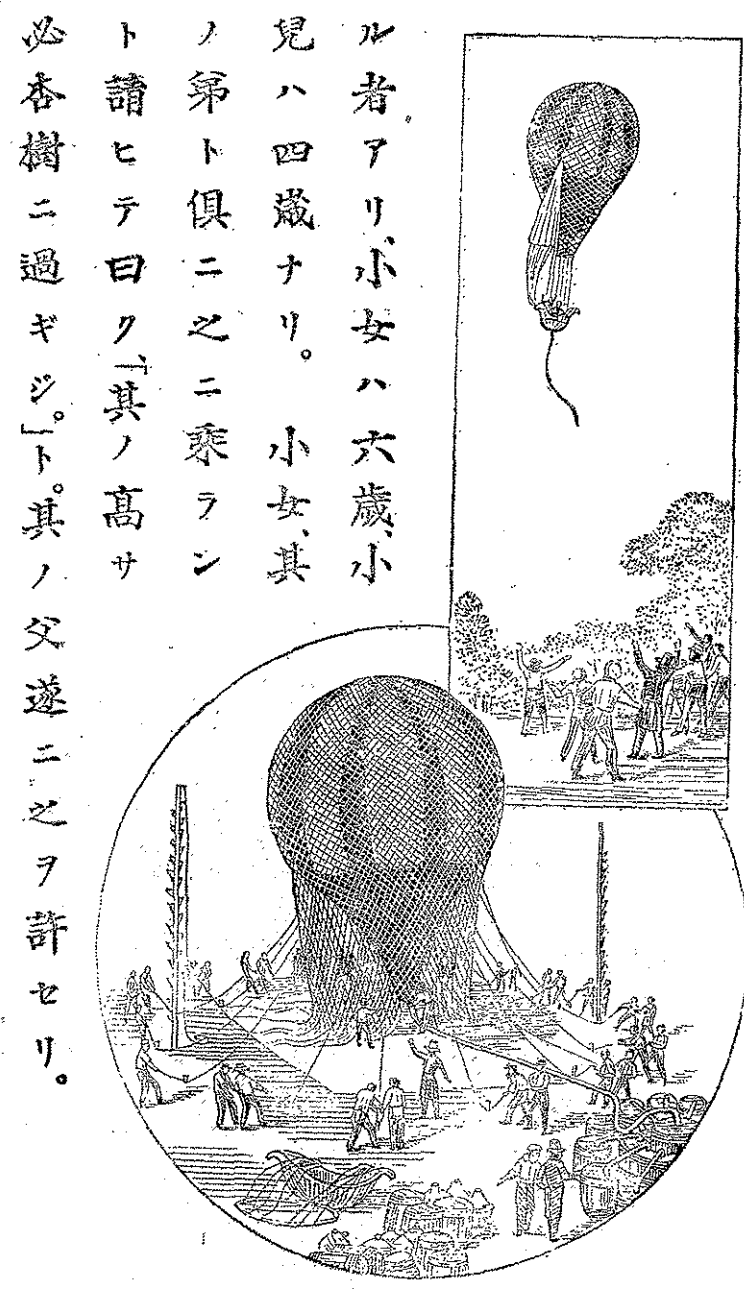 ル者アリ、小女ハ六歳、小
兒ハ四歳ナリ。 小女、其
ノ弟ト倶ニ之ニ乘ラン
ト請ヒテ曰ク、「其ノ高サ
必杏樹ニ過ギジ。」ト。其ノ父遂ニ之ヲ許セリ。